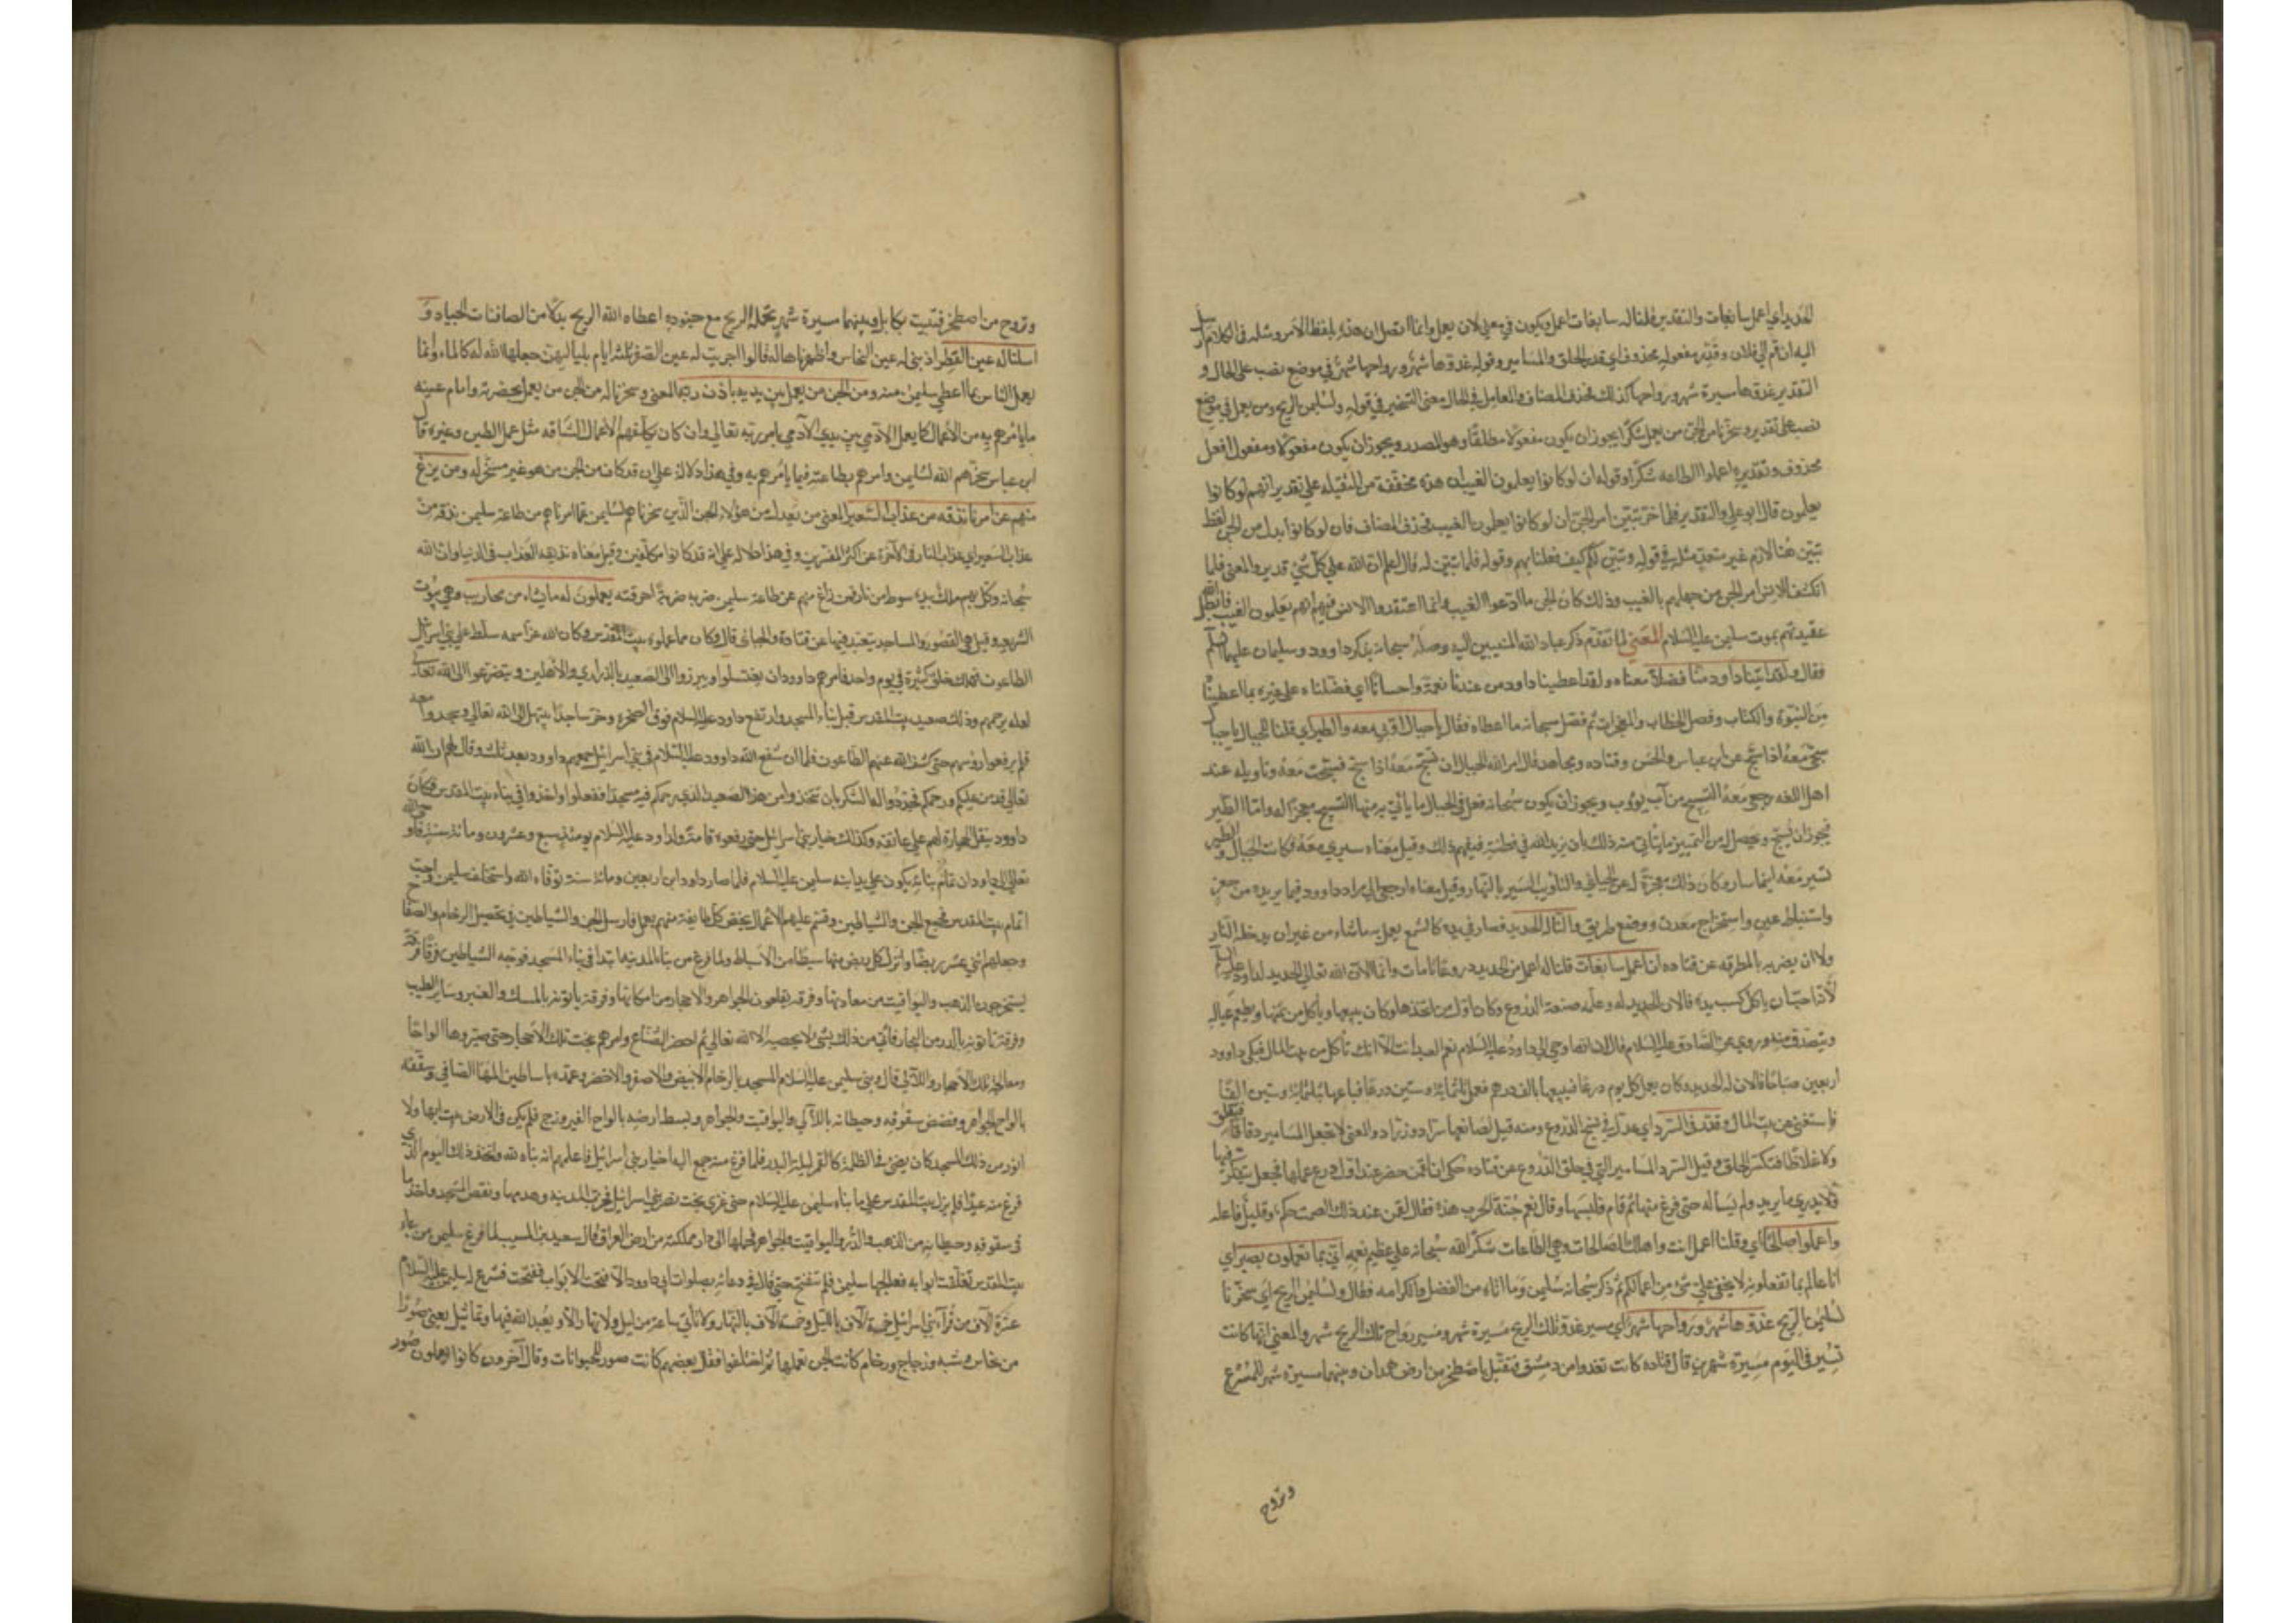 الحديد اي اعمل سابغات والتقدير قلنا له سابغات اعمل ويكون في معني لان يعمل وانما اتصل ان هذه بلفظ الامر ومثله في الكلام ارسل
اليه ان قم الي فلان وقدر مفعوله محذوف اي قدر الحلق والمسامير وقوله غدوها شهر ورواحها شهر في موضع نصب علي الحال و
التقدير غدوها مسيرة شهر ورواحها كذلك فحذف المضاف والعامل في الحال معني التسخير في قوله ولسليمن الريح ومن يعمل في موضع
نصب علي تقدير وسخرنا من الجن من يعمل شكرا يجوز ان يكون مفعولا مطلقا وهو المصدر ويجوز ان يكون مفعولا ومفعول افعل
محذوف وتقديره اعملوا الطاعه شكرا وقوله ان لو كانوا يعلمون الغيب ان هذه مخففة من الثقيله علي تقدير انهم لو كانوا
يعلمون قال ابو علي والتقدير فلما خر تبين امر الجن ان لو كانوا يعلمون الغيب فحذف المضاف فان لو كانوا بدل من الجن لفظ
تبين هنا لازم غير متعد مثله في قوله وتبين لكم كيف فعلنا بهم وقوله فلما تبين له قال اعلم ان الله علي كل شئ قدير والمعني فلما
انكشف للانس امر الجن من جهلهم بالغيب وذلك كان الجن ما ادعوا الغيب وانما اعتقدوا الانس فيهم انهم يعلمون الغيب فابطل الله
عقيدتهم بموت سليمن عليه السلام المعني لما تقدم ذكر عباد الله المنيبين اليه وصله سبحانه بذكر داوود وسليمان عليهما السلم
فقال ولقد اتينا داود منا فضلا معناه ولقد اعطينا داود من عندنا نعمة واحسانا اي فضلناه علي غيره بما اعطيناه
من النبوة والكتاب وفصل الخطاب والمعجزات ثم فصل سبحانه ما اعطاه فقال يا جبال اوبي معه والطير اي قلنا للجبال يا جبال
سبحي معه اذا سبح عن ابن عباس والحسن وقتاده ومجاهد قال امر الله الجبال ان تسبح معه اذا سبح فسبحت معه وتاويله عند
اهل اللغه رجعي معه التسبيح من آب يوؤب ويجوز ان يكون سبحانه فعل في الجبال ما ياتي به منها التسبيح معجزا له واما الطير
فيجوز ان يسبح ويحصل له من التمييز ما يتاتي منه ذلك بان يزيد الله في فطنته فيفهم ذلك وقيل معناه سيري معه فكانت الجبال والطير
تسير معه اينما سار وكان ذلك معجزة له عن الجبائي والتاويب السير بالنهار وقيل معناه ارجعي الي مراد داوود فيما يريده من حفر
واستنباط عين واستخراج معدن ووضع طريق والنا له الحديد فصار في يده كالشمع يعمل به ما شاء من غير ان يدخله النار
ولا ان يضربه بالمطرقه عن قتاده ان اعمل سابغات قلنا له اعمل من الحديد دروعا تامات وانما الان الله تعالي الحديد لداود عليه السلم
لانه احب ان ياكل كسب يده فالان الحديد له وعلمه صنعة الدروع وكان اول من اتخذها وكان يبيعها وياكل من ثمنها ويطعم عياله
ويتصدق منه وروي عن الصادق عليه السلام قال ان الله اوحي الي داود عليه السلام نعم العبد انت الا انك تاكل من بيت المال فبكي داوود
اربعين صباحا فالان له الحديد وكان يعمل كل يوم درعا فيبيعها بالف درهم فعمل ثلثمائة وستين درعا فباعها بثلثمائة وستين الفا
فاستغني عن بيت المال وقدر في السرد اي عدل في نسج الدروع ومنه قيل لصانعها سراد وزراد والمعني لا تجعل المسامير دقاقا فتقلق
ولا غلاظا فتكسر الحلق وقيل السرد المسامير التي في حلق الدروع عن قتاده حكي ان لقمن حضر عند اول درع عملها فجعل يتفكر فيها
ولا يدري ما يريد ولم يساله حتي فرغ منها ثم قام فلبسها وقال نعم جنة الحرب هذه فقال لقمن عند ذلك الصمت حكم وقليل فاعله
واعملوا صالحا اي وقلنا اعمل انت واهلك الصالحات وهي الطاعات شكرا لله سبحانه علي عظيم نعمه اني بما تعملون بصير اي
انا عالم بما تفعلونه لا يخفي علي شئ من اعمالكم ثم ذكر سبحانه سليمن وما اتاه من الفضل والكرامه فقال ولسليمن الريح اي سخرنا
لسليمن الريح غدوها شهر ورواحها شهر اي مسير غدو تلك الريح مسيرة شهر ومسير رواح تلك الريح شهر والمعني انها كانت
تسير في اليوم مسيرة شهرين قال قتاده كانت تغدوا من دمشق فتقيل باصطخر من ارض همدان وبينهما مسيرة شهر للمسرع
وتروح
وتروح من اصطخر فتبيت بكابل وبينهما مسيرة شهر تحمله الريح مع جنوده اعطاه الله الريح بدلا من الصافنات الجياد و
اسلنا له عين القطر اذ بنا له عين النحاس واظهرناها له قالوا اجريت له عين الصفر ثلثة ايام بلياليهن جعلها الله له كالماء وانما
يعمل الناس بما اعطي سليمن منه ومن الجن من يعمل بين يديه باذن ربه المعني وسخرنا له من الجن من يعمل بحضرته وامام عينه
ما يامرهم به من الاعمال كما يعمل الادمي بين يدي الادمي بامر ربه تعالي وان كان يكلفهم الاعمال الشاقه مثل عمل الطين وغيره قال
ابن عباس سخرهم الله لسليمن وامرهم بطاعته فيما يامرهم به وفي هذا دلالة علي انه قد كان من الجن من هو غير مسخر له ومن يزغ
منهم عن امرنا نذقه من عذاب السعير المعني من يعدل من هؤلاء الجن الذين سخرناهم لسليمن عما امرناهم من طاعة سليمن نذقه من
عذاب السعير اي عذاب النار في الآخرة عن اكثر المفسرين وفي هذا دلاله علي انه قد كانوا مكلفين وقيل معناه نذيقه العذاب في الدنيا وان الله
سبحانه وكل بهم ملك بيده سوط من نار فمن زاغ منهم عن طاعة سليمن ضربه ضربة احرقته يعملون له ما يشاء من محاريب وهي بيوت
الشريعه وقيل هي القصور والمساجد يتعبد فيها عن قتادة والجبائي قال وكان مما عملوه بيت المقدس وكان الله عز اسمه سلط علي بني اسرائيل
الطاعون فهلك خلق كثيرة في يوم واحد فامرهم داوود ان يغتسلوا ويبرزوا الي الصعيد بالذراري والاهلين ويتضرعوا الي الله تعالي
لعله يرحمهم وذلك صعيد بيت المقدس قبل بناء المسجد وارتفع داود عليه السلام فوق الصخره وخر ساجدا يبتهل الي الله تعالي وسجدوا معه
فلم يرفعوا رؤسهم حتي كشف الله عنهم الطاعون فلما ان شفع الله داوود عليه السلام في بني اسرائيل جمعهم داوود بعد ثلث وقال لهم ان الله
تعالي قد من عليكم ورحمكم فجددوا له الشكر بان تتخذوا من هذا الصعيد الذي رحمكم فيه مسجدا ففعلوا واخذوا في بناء بيت المقدس فكان
داوود ينقل الحجارة لهم علي عاتقه وكذلك خيار بني اسرائيل حتي رفعوه قامة ولداود عليه السلام يومئذ سبع وعشرون ومائة سنة فاوحي الله
تعالي الي داود ان تمام بنائه يكون علي يد ابنه سليمن عليه السلام فلما صار داود ابن اربعين ومائة سنة توفاه الله واستخلف سليمن فاحب
اتمام بيت المقدس فجمع الجن والشياطين وقسم عليهم الاعمال يخص كل طايفة منهم بعمل فارسل الجن والشياطين في تحصيل الرخام والصفاح
وجعلهم اثني عشر ربضا وانزل كل ربض منها سبطا من الاسباط ولما فرغ من بناء المدينه ابتدا في بناء المسجد فوجه الشياطين فرقا فرقة
يستخرجون الذهب واليواقيت من معادنها وفرقه يقلعون الجواهر والاحجار من اماكنها وفرقة ياتونه بالمسك والعنبر وساير الطيب
وفرقة ياتونه بالدر من البحار فاتي من ذلك بشئ لا يحصيه الا الله تعالي ثم احضر الصناع وامرهم بنحت تلك الاحجار حتي صيروها الواحا
ومعالجة تلك الاحجار واللآلي قال وبني سليمن عليه السلام المسجد بالرخام الابيض والاصفر والاخضر وعمده باساطين المها الصافي وسقفه
بالواح الجواهر وفضض سقوفه وحيطانه باللآلي واليواقيت والجواهر وبسط ارضه بالواح الفيروزج فلم يكن في الارض بيت ابها ولا
انور من ذلك المسجد كان يضئ في الظلمة كالقمر ليلة البدر فلما فرغ منه جمع اليه اخيار بني اسرائيل فاعلمهم انه بناه لله واتخذ ذلك اليوم الذي
فرغ منه عيدا فلم يزل بيت المقدس علي ما بناه سليمن عليه السلام حتي غزي بخت نصر بني اسرائيل فخرب المدينه وهدمها ونقض المسجد واخذ ما
في سقوفه وحيطانه من الذهب والدر واليواقيت والجواهر فحملها الي دار مملكته من ارض العراق قال سعيد بن المسيب لما فرغ سليمن من بناء
بيت المقدس تغلقت ابوابه فعالجها سليمن فلم تنفتح حتي قال في دعائه بصلوات ابي داوود الا فتحت الابواب ففتحت ففرغ له سليمن عليه السلام
عشرة الاف من قراء بني اسرائيل خمسة الاف بالليل وخمسة الاف بالنهار ولا تاتي ساعة من ليل ولا نهار الا ويعبد الله فيها وتماثيل يعني صورا
من نحاس وشبه وزجاج ورخام كانت الجن تعملها ثم اختلفوا فقال بعضهم كانت صور للحيوانات وقال آخرون كانوا يعملون صور